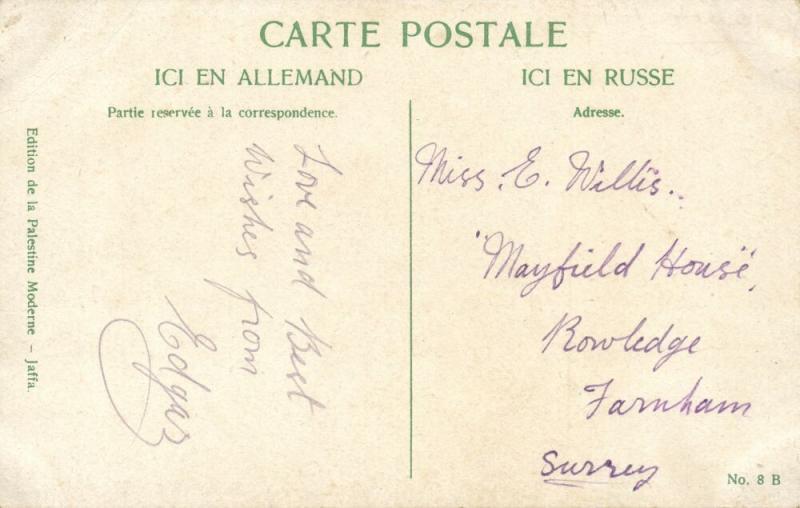 CARTE POSTALE
ICI EN ALLEMAND
ICI EN RUSSE
Partie reservée à la correspondence.
Adresse.
Love and Best
Wishes from
Edgar
Miss. E. Willis.
"Mayfield House",
Rowledge
Farnham
Surrey
Edition de la Palestine Moderne – Jaffa.
No. 8 B